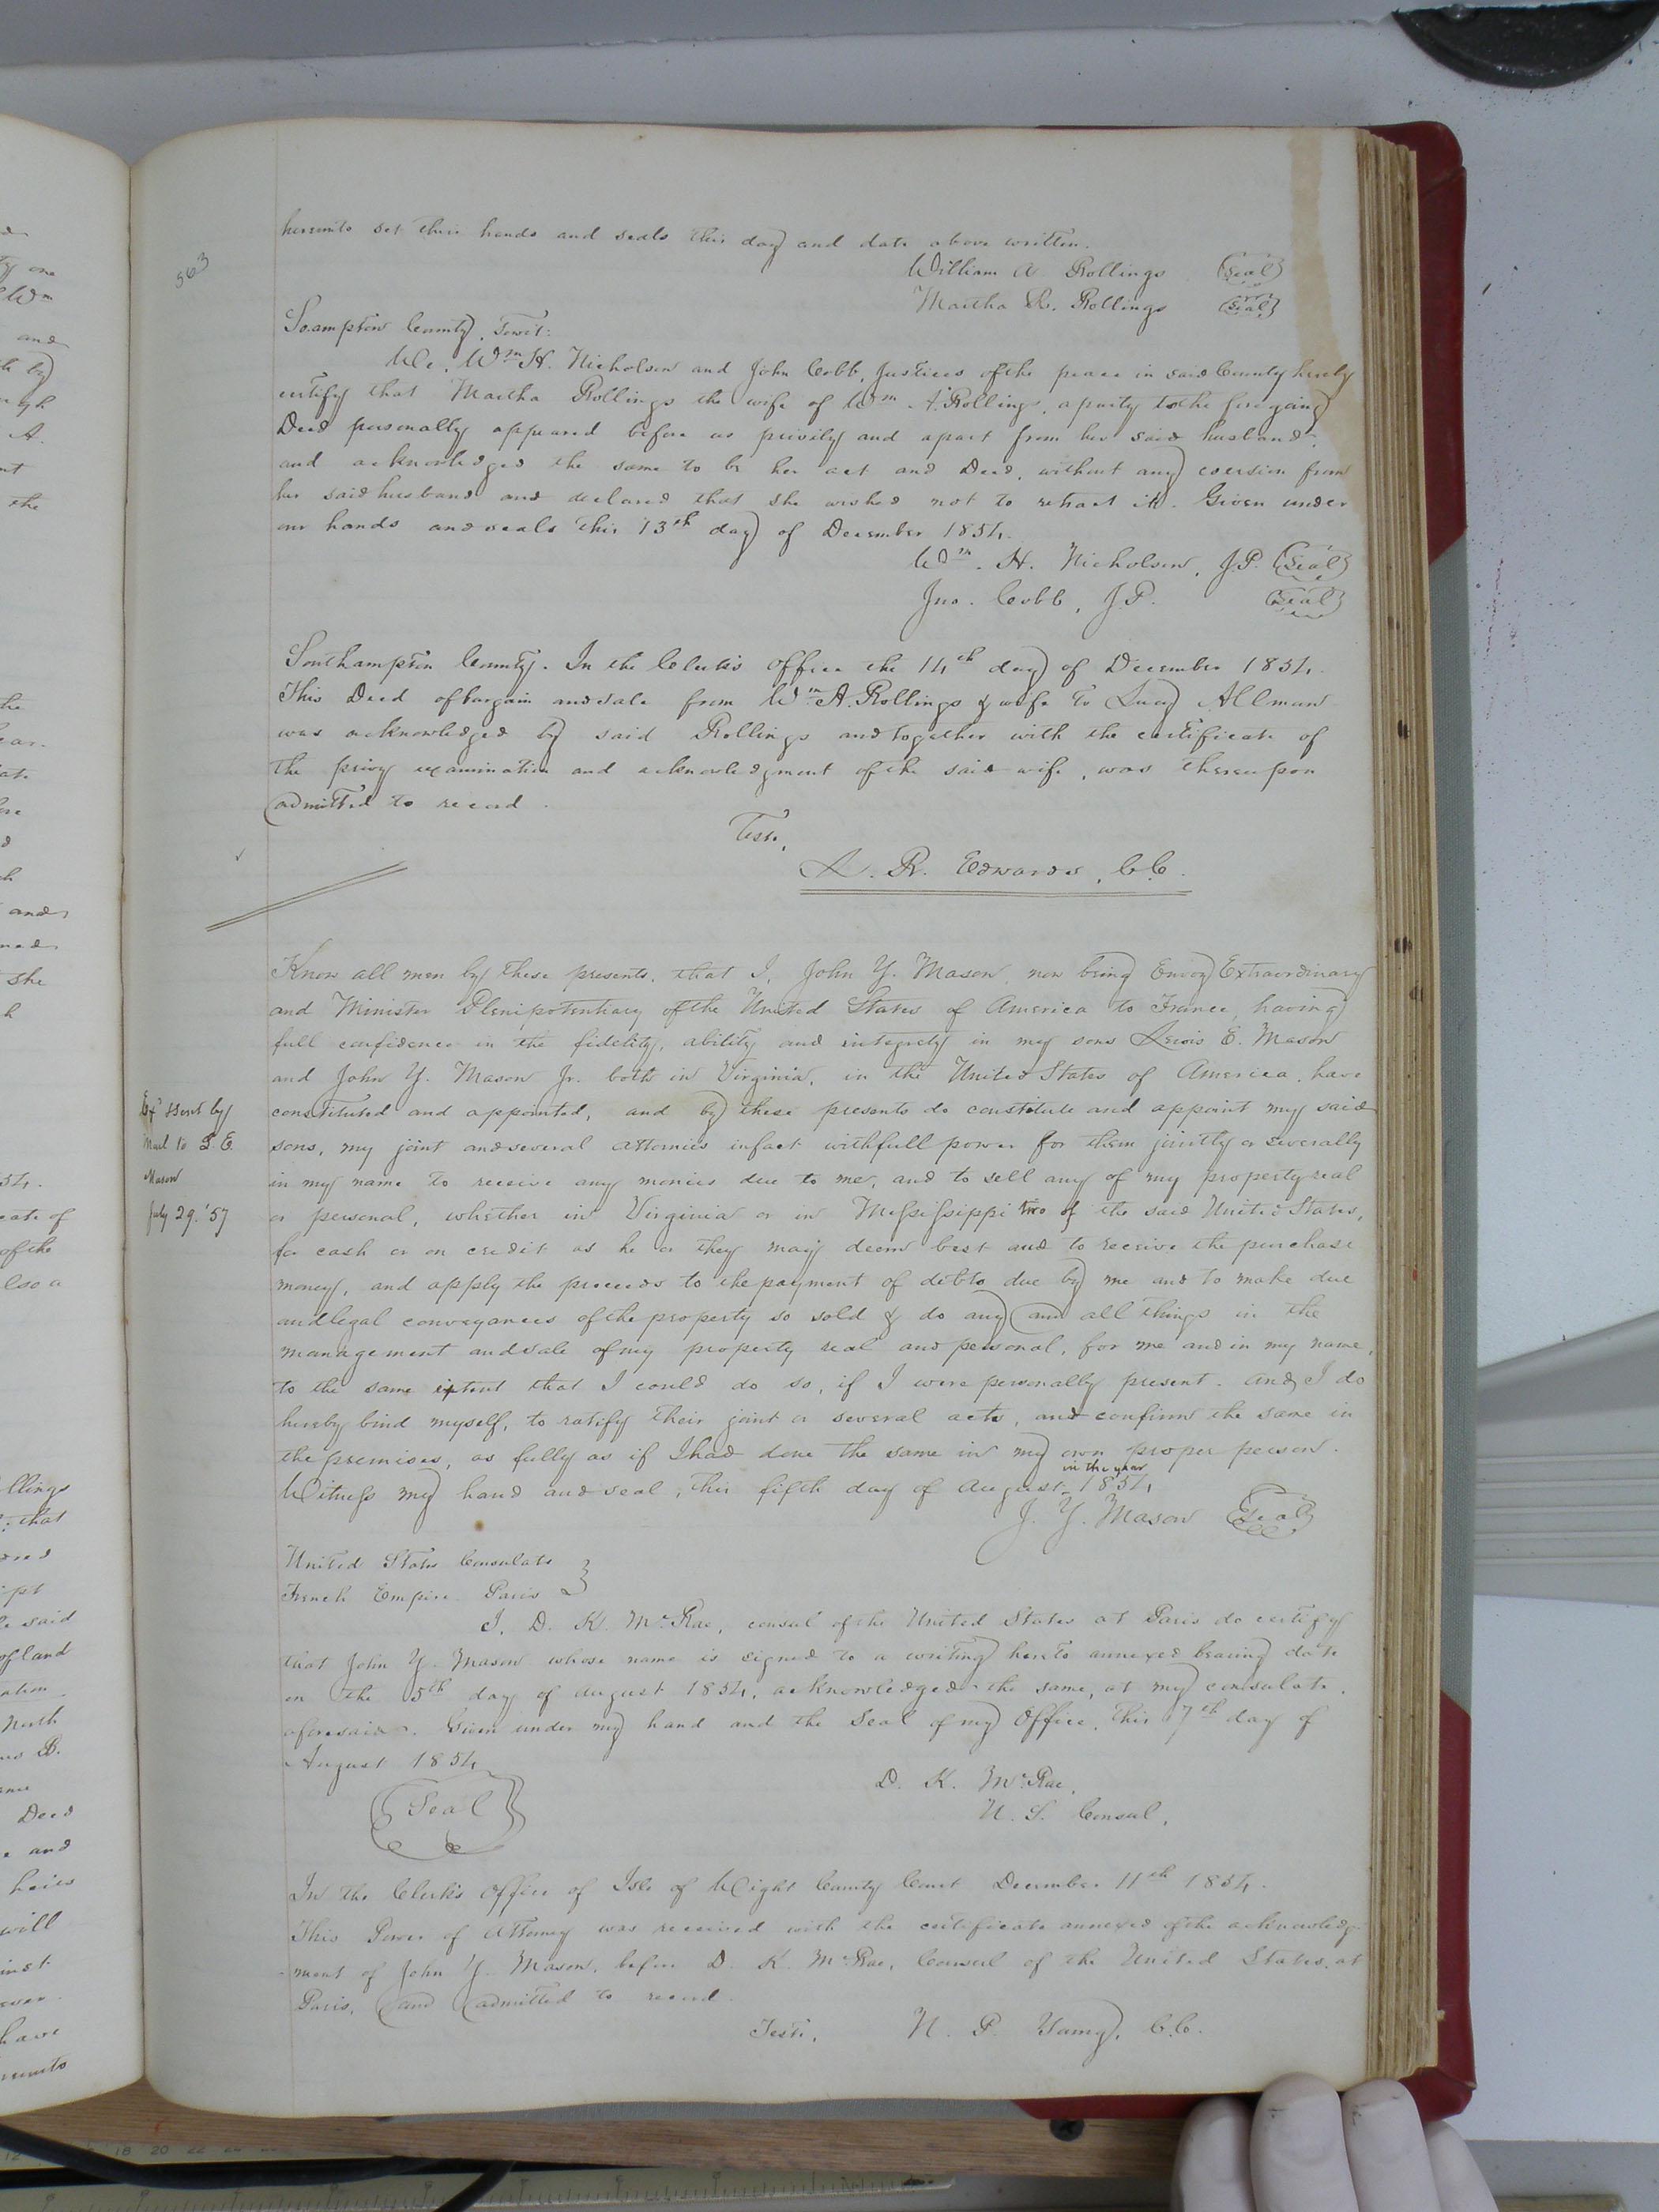 563
hereunto set their hands and seals this day and date above written.
William A Rollings (Seal)
Martha R. Rollings (Seal)
So.ampton County, Towit:
We, Wm H. Nicholson and John Cobb, Justices of the peace in said County hereby
certify that Martha Rollings the wife of Wm A. Rollings, a party to the foregoing
Deed personally appeared before us privily and apart from her said husband,
and acknowledged the same to be her act and Deed, without any coersion from
her said husband and declared that she wished not to retract it. Given under
our hands and seals this 13th day of December 1854.
Wm. H. Nicholson, J.P. (Seal)
Jno. Cobb, J.P. (Seal)
Southampton County. In the Clerk's office the 14th day of December 1854.
This Deed of bargain and sale from Wm A. Rollings & wife to Lucy Allman
was acknowledged by said Rollings and together with the certificate of
the privy examination and acknowledgment of the said wife, was thereupon
admitted to record.
Teste,
L. R. Edwards, C.C.
Know all men by these presents, that I, John Y. Mason, now being Envoy Extraordinary
and Minister Plenipotentiary of the United States of America to France, having
full confidence in the fidelity, ability and integrety in my sons Lewis E. Mason
and John Y. Mason Jr. both in Virginia, in the United States of America, have
constituted and appointed, and by these presents do constitute and appoint my said
sons, my joint and several attornies in fact with full power for them jointly or severally
in my name to receive any monies due to me, and to sell any of my property real
or personal, whether in Virginia or in Mississippi two of the said United States,
for cash or on credit as he or they may deem best and to receive the purchase
money, and apply the proceeds to the payment of debts due by me and to make due
and legal conveyances of the property so sold & do any and all things in the
management and sale of my property real and personal, for me and in my name,
to the same extent that I could do so, if I were personally present. And I do
hereby bind myself, to ratify their joint or several acts, and confirm the same in
the premises, as fully as if I had done the same in my own proper person.
in the year
Witness my hand and seal, this fifth day of August 1854
J. Y. Mason (Seal)
Ex' sent by
Mail to L. E.
Mason
July 29. '57
United States Consulate
French Empire Paris }
I, D. K. McRae, consul of the United States at Paris do certify
that John Y. Mason whose name is signed to a writing hereto annexed bearing date
on the 5th day of August 1854, acknowledged the same, at my consulate
aforesaid. Given under my hand and the Seal of my Office, this 7th day of
August 1854
(Seal)
D. K. McRae,
U. S. Consul,
In the Clerk's Office of Isle of Wight County Court December 11th 1854.
This Power of Attorney was received with the certificate annexed of the acknowledg-
-ment of John Y. Mason, before D. K. McRae, Consul of the United States, at
Paris, and admitted to record.
Teste, N. P. Young, C.C.